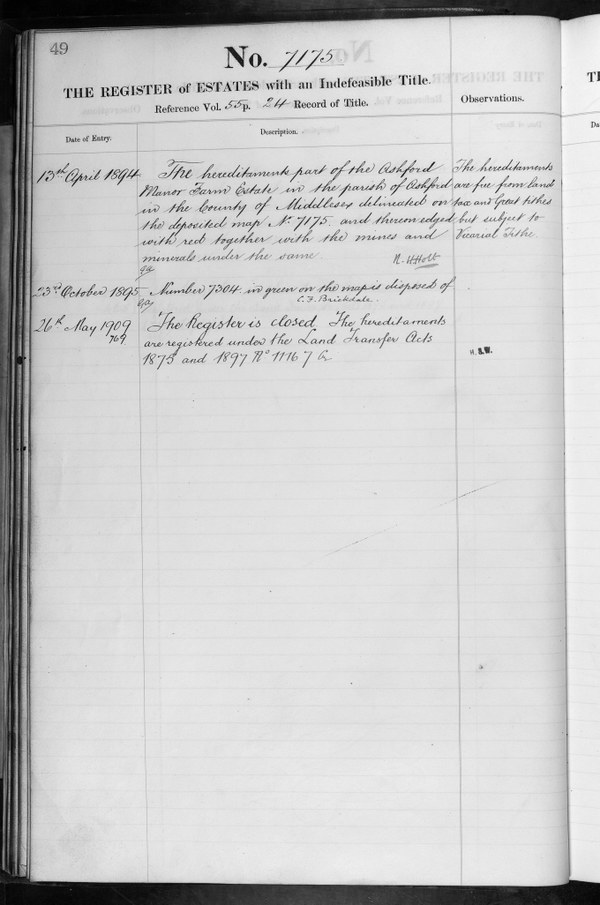 49
No. 7175
THE REGISTER of ESTATES with an Indefeasible Title.
Reference Vol. 55 p. 24 Record of Title.
Observations.
Date of Entry.
Description.
13th April 1894
The hereditaments part of the Ashford
Manor Farm Estate in the parish of Ashford
in the County of Middlesex delineated on
the deposited map No. 7175 and thereon edged
with red together with the mines and
minerals under the same.
The hereditaments
are free from land
tax and Great tithes
but subject to
Vicarial Tithe.
R. H. Holt
23rd October 1895
Number 7304 in green on the map is disposed of
C. F. Brickdale.
26th May 1909
The Register is closed. The hereditaments
are registered under the Land Transfer Acts
1875 and 1897 No 11167
H. B. W.